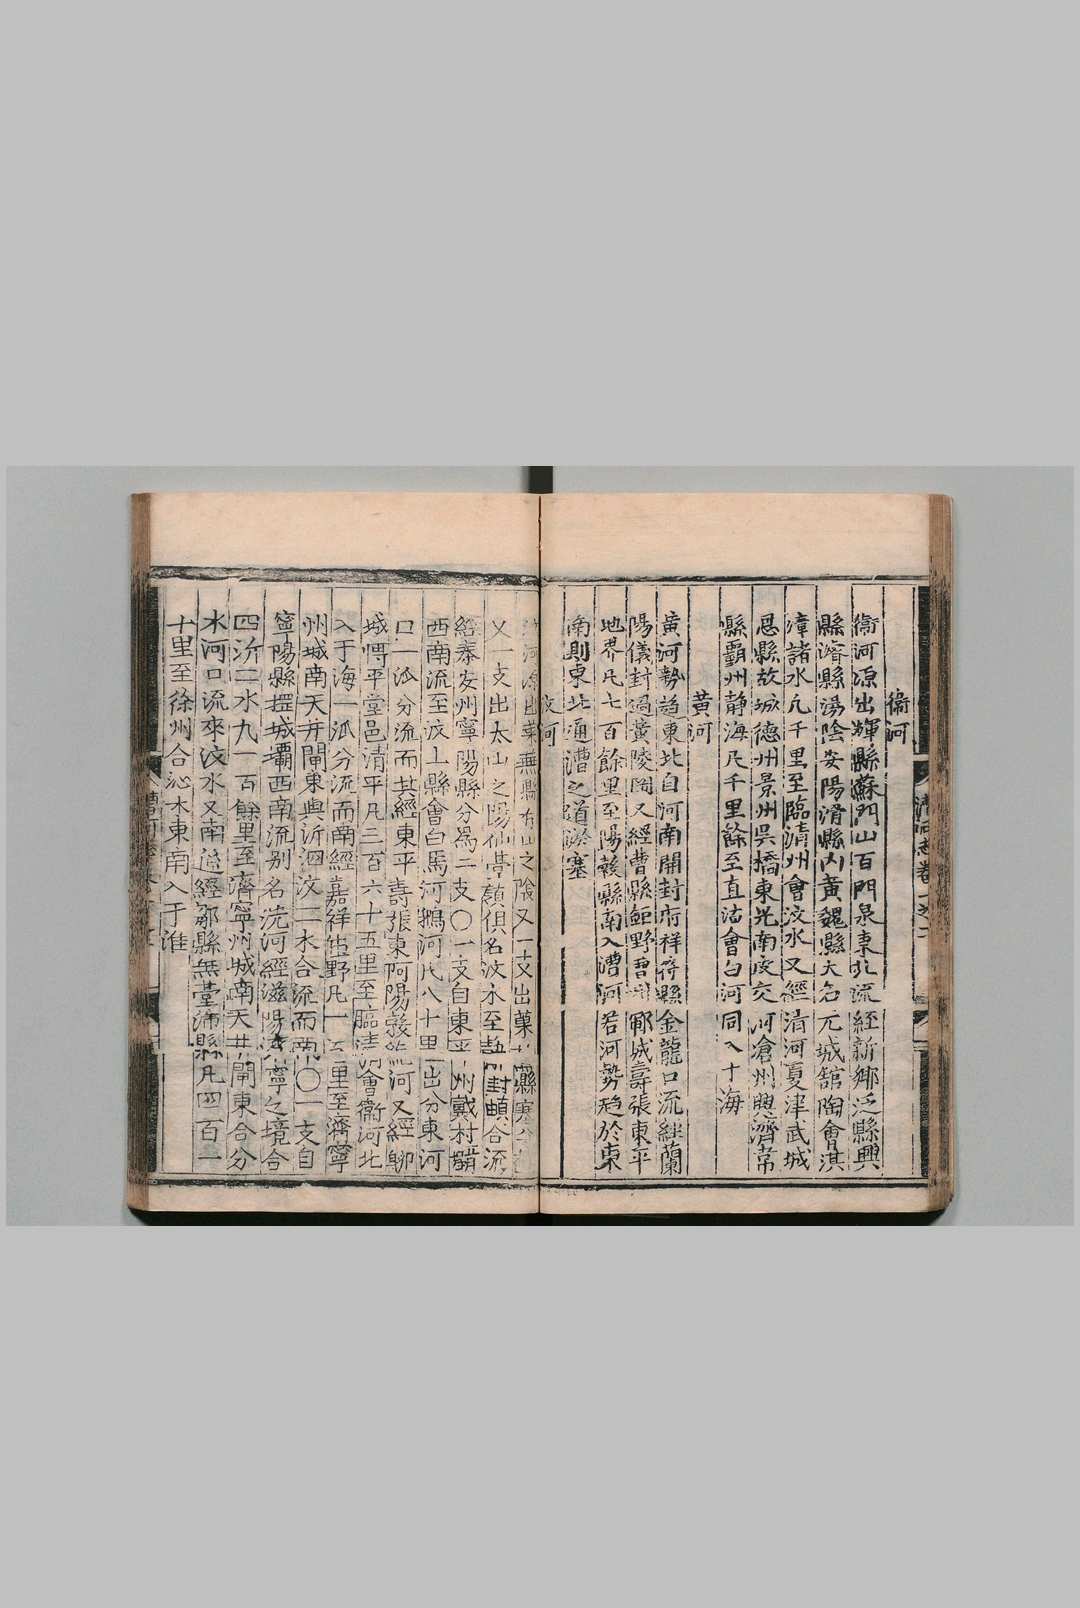 衞河
衞河源出輝縣蘇門山百門泉東北流經新鄉汲縣興
縣濬縣湯陰安陽滑縣內黃魏縣大名元城舘陶會淇
漳諸水凡千里至臨清州會汶水又經清河夏津武城
恩縣故城德州景州吳橋東光南皮交河滄州興濟青
縣霸州靜海凡千里餘至直沽會白河同入于海
黃河
黃河勢趨東北自河南開封府祥符縣金龍口流經蘭
陽儀封過黃陵岡又經曹縣鉅野曹州鄆城壽張東平
地界凡七百餘里至陽穀縣南入漕河若河勢趨於東
南則東北通漕之道淤塞
汶河
汶河源出萊蕪縣 山之陰又一支出萊 縣寨
又一支出太山之陽仙臺嶺俱名汶水至靜封鎮合流
經泰安州寧陽縣分爲二支〇一支自東平州戴村
西南流至汶上縣會白馬河鵝河凡八十里出分東河
口一派分流而其經東平壽張東阿陽穀 河又經聊
城博平堂邑清平凡三百六十五里至臨清會衞河北
入于海一派分流而南經嘉祥鉅野凡一 里至濟寧
州城南天井閘東與沂泗汶二水合流而南〇一支自
寧陽縣堽城壩西南流别名洸河經滋陽濟寧之境合
四沂二水九一百餘里至濟寧州城南天井閘東合分
水河口流來汶水又南 經鄒縣無臺沛縣凡四百一
十里至徐州合沁水東南入于淮
漕河 卷之二